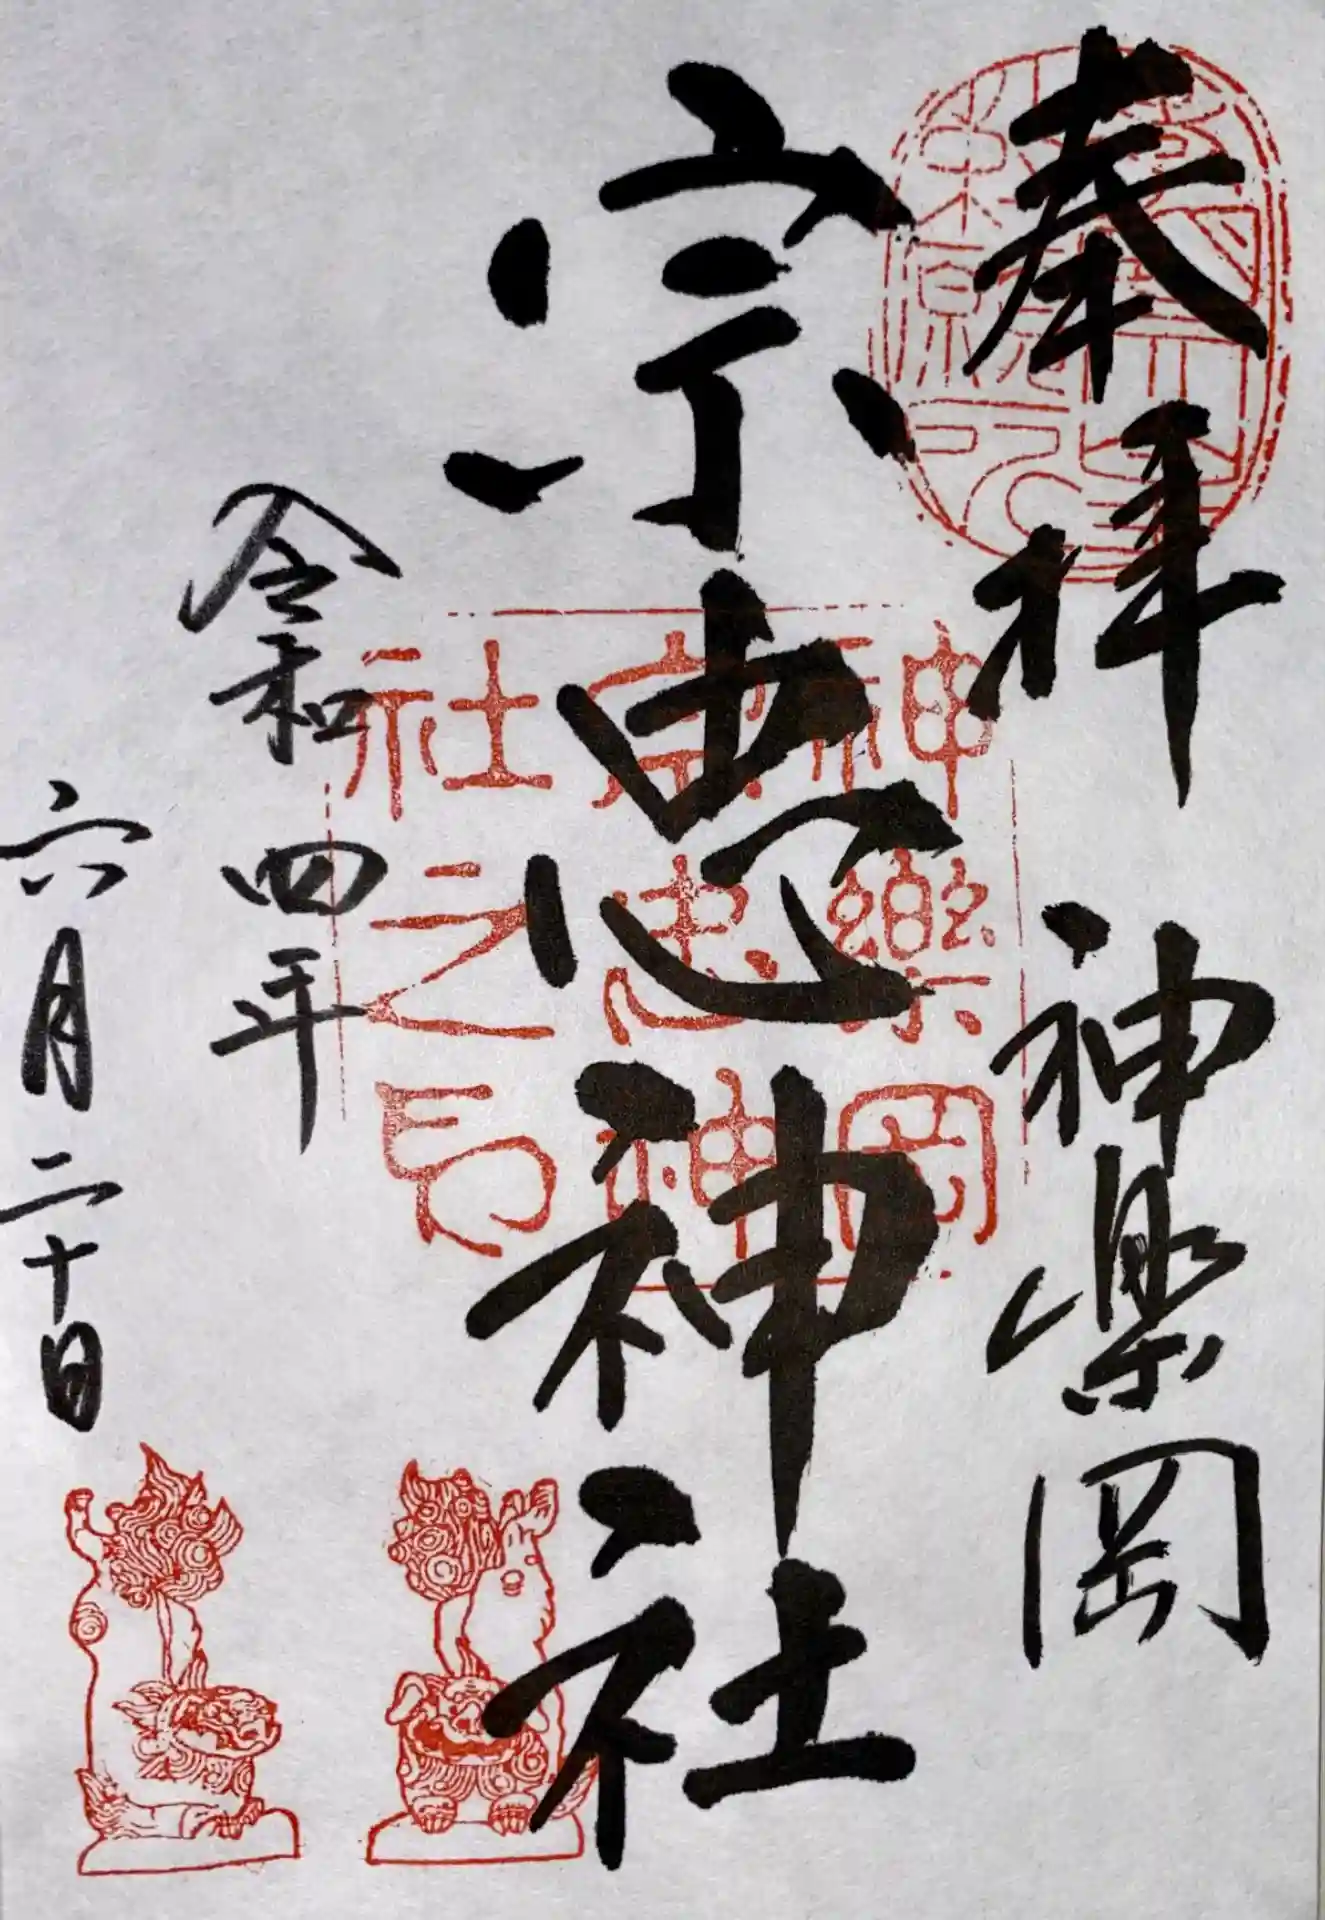 奉拝 神楽岡
宗忠神社
令和四年
六月二十日
神楽岡
宗忠神
社之印